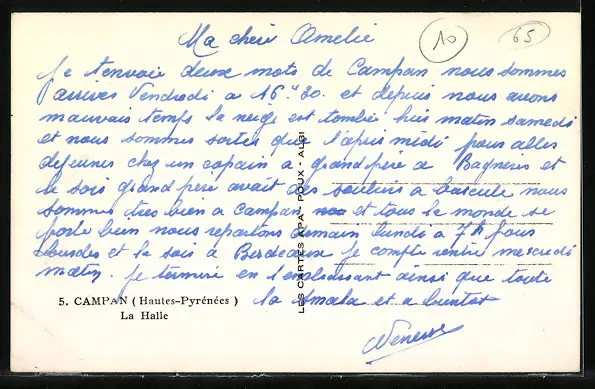 10
65
Ma cheri Amelie
Je t'envoie deux mots de Campan nous sommes
arrives Vendredi a 16h30. et depuis nous avons
mauvais temps la neige est tombée hier matin samedi
et nous sommes sortes que l'apris midi pour aller
dejeuner chez un copain a grand pere a Bagneres et
le soir grand pere avait des souliers a bascule nous
sommes tres bien a Campan et tous le monde se
porte bien nous repartons demain lundi a 7h pour
Lourdes et le soir a Bordeaux Je compte rentre mercredi
matin. Je termine en t'embrassant ainsi que toute
la smala et a bientot
LES CARTES APA - POUX - ALBI
5. CAMPAN (Hautes-Pyrénées)
La Halle